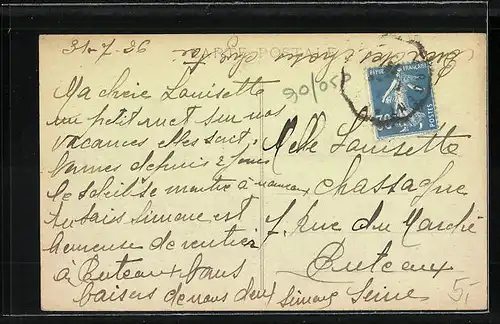 31-7-26
CARTE POSTALE
90/058
Ma chère Louisette
un petit mot sur nos
vacances elles sont
bonnes depuis 2 jours
le soleil se montre à nouveau
tu sais Simone est
heureuse de rentrer
à Puteaux bons
baisers de nous deux
Simone
Melle Louisette
Chassagne
7. Rue du Marché
Puteaux
Seine
POSTES
30
5,-